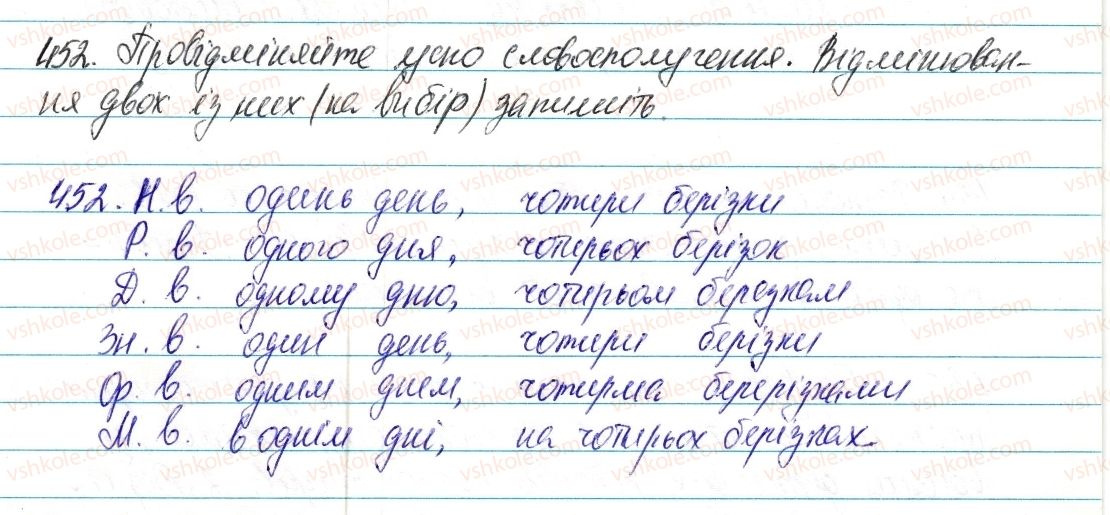 452. Провідміняйте усно словосполучення. Відмінюван-
ня двох із них (на вибір) запишіть.
452. Н.в. один день, чотири берізки
Р. в. одного дня, чотирьох берізок
Д. в. одному дню, чотирьом березкам
Зн. в. один день, чотири берізки
Ор. в. одним днем, чотирма беререізками
М. в. в однім дні, на чотирьох берізках.